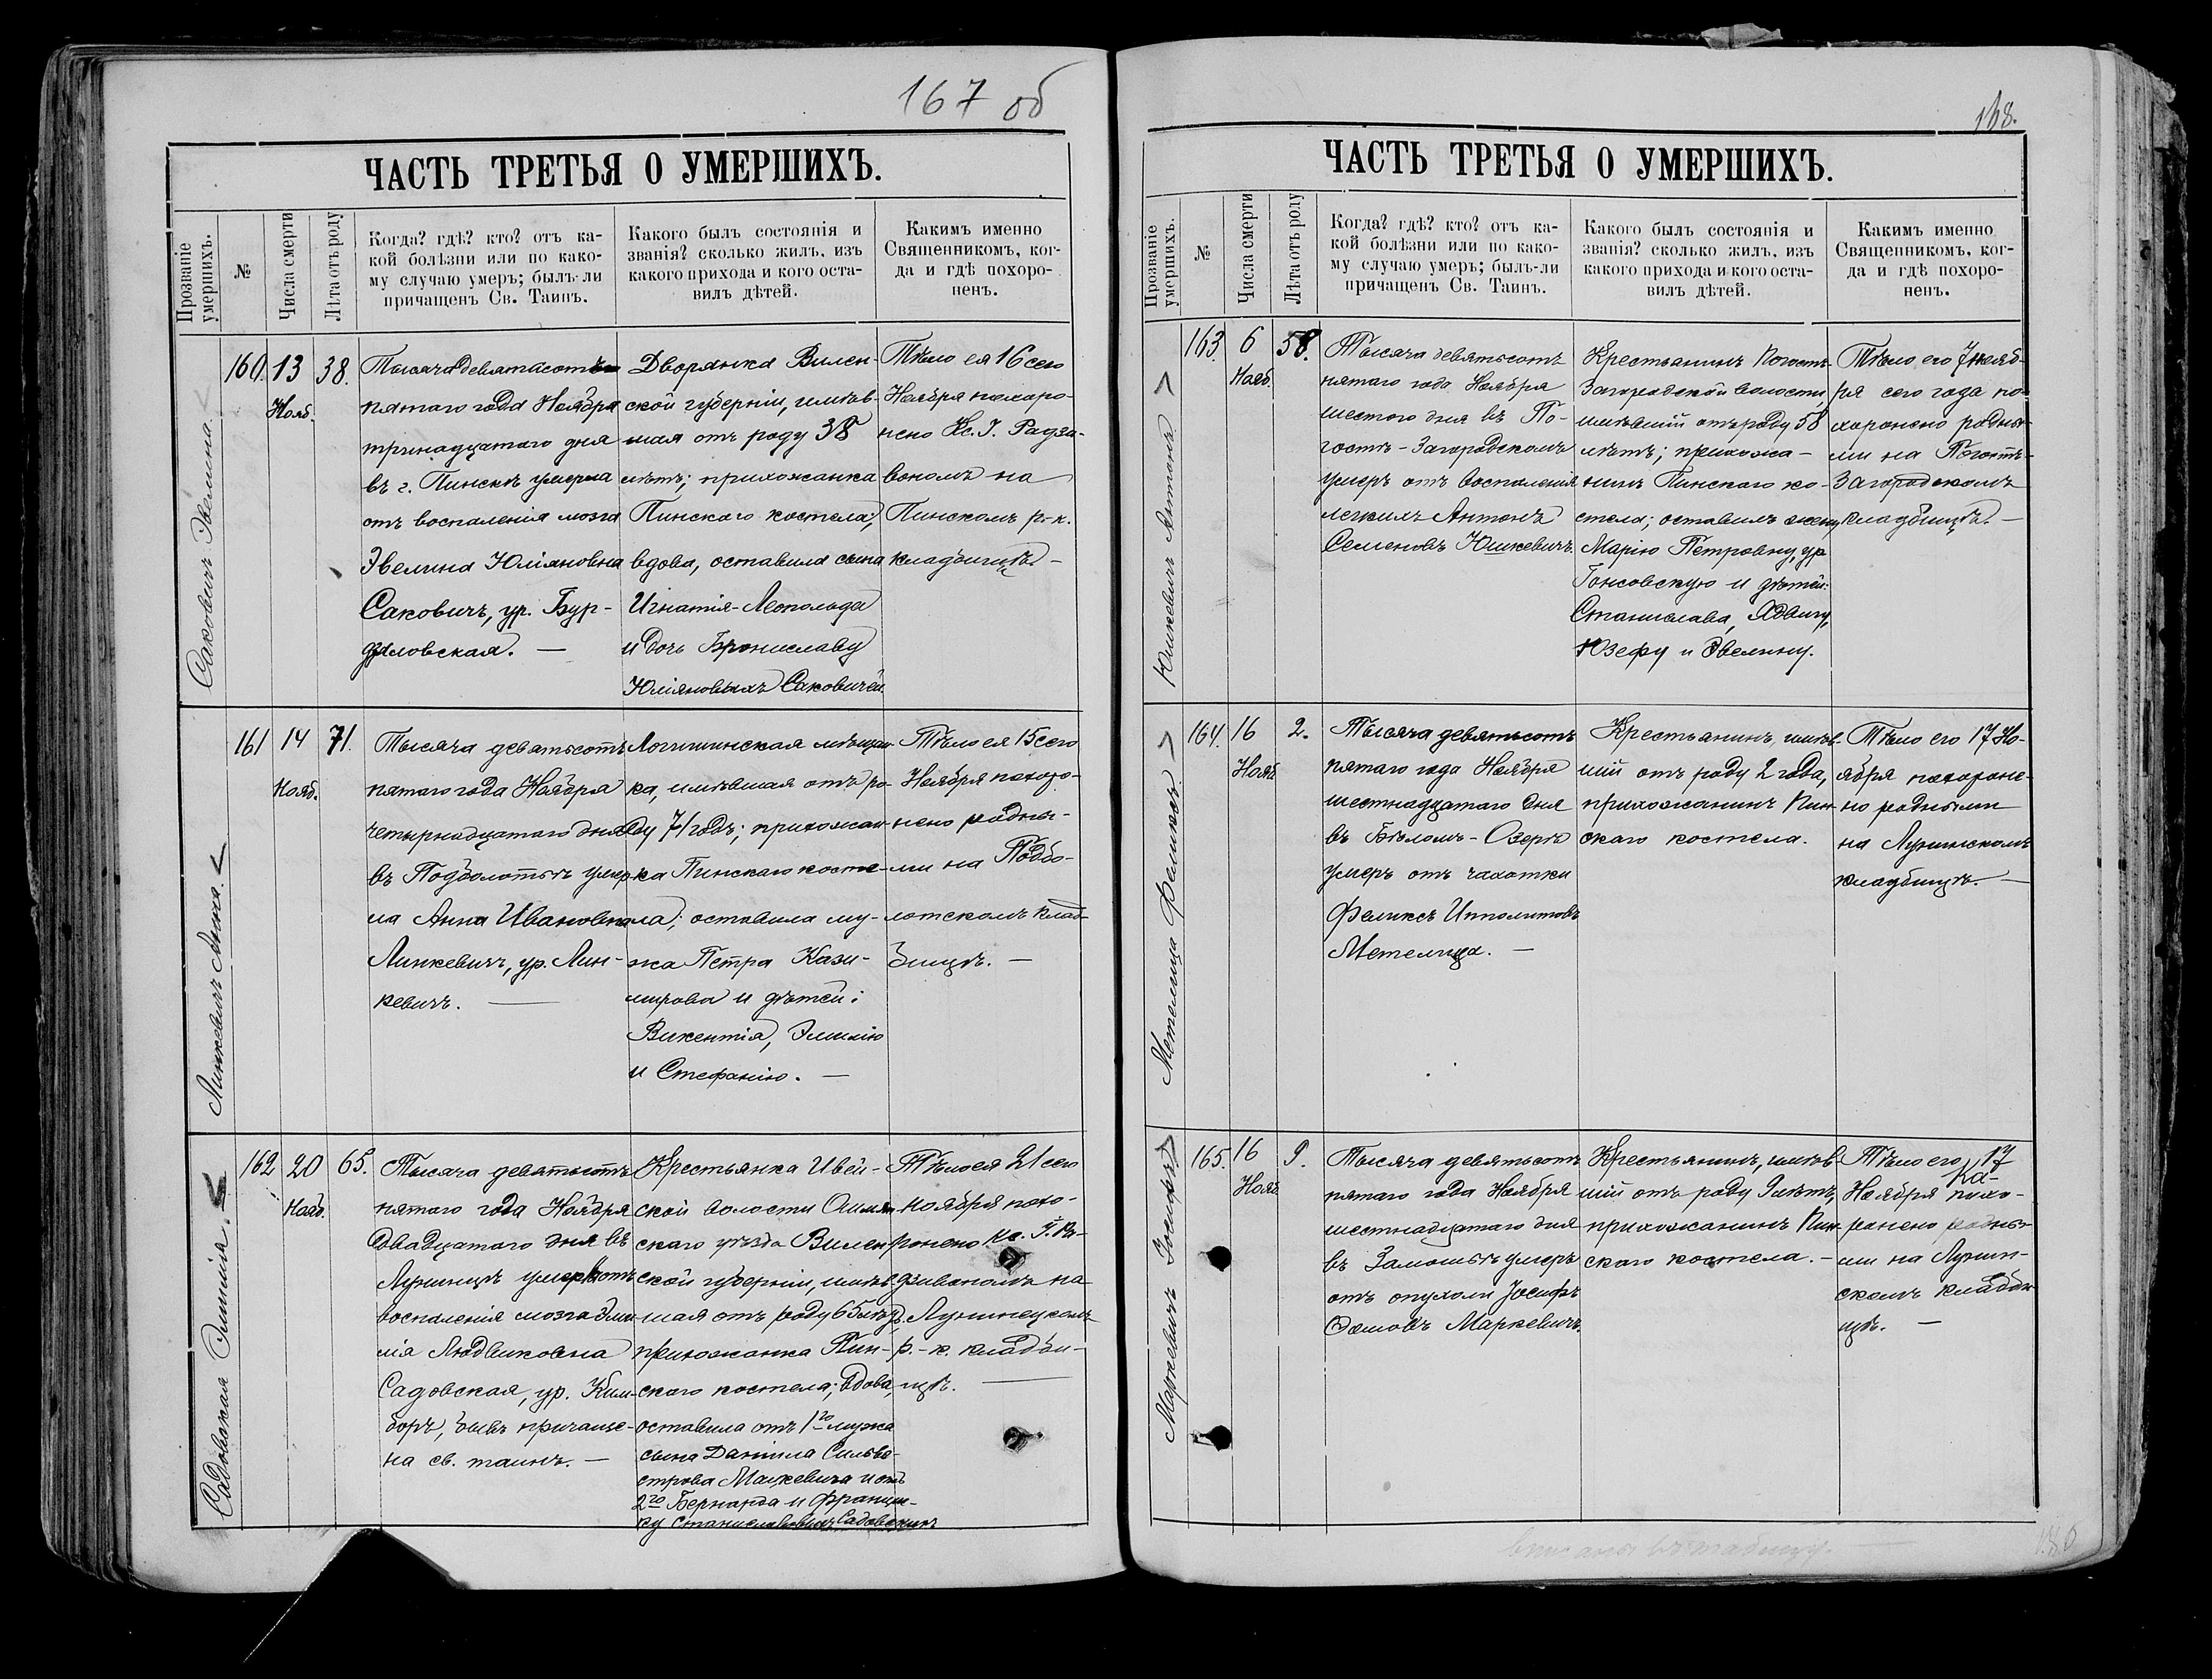 167 об
ЧАСТЬ ТРЕТЬЯ О УМЕРШИХЪ.
Прозваніе умершихъ.
№
Числа смерти
Лѣта отъ роду
Когда? гдѣ? кто? отъ ка-
кой болѣзни или по како-
му случаю умеръ; былъ-ли
причащенъ Св. Таинъ.
Какого былъ состоянія и
званія? сколько жилъ, изъ
какого прихода и кого оста-
вилъ дѣтей.
Какимъ именно
Священникомъ, ког-
да и гдѣ похоро-
ненъ.
Саковичъ Эвелина.
160.
13
Нояб.
38.
Тысяча девятьсотъ
пятаго года Ноября
тринадцатаго дня
въ г. Пинскѣ умерла
отъ воспаленія мозга
Эвелина Юліяновна
Саковичъ, ур. Бур-
дзиловская. —
Дворянка Вилен-
ской губерніи, имѣв-
шая отъ роду 38
лѣтъ; прихожанка
Пинскаго костела;
вдова, оставила сына
Игнатія-Леопольда
и дочь Брониславу
Юліяновыхъ Саковичей.
Тѣло ея 16 сего
Ноября похоро-
нено Кс. І. Радзи-
вономъ на
Пинскомъ р.-к.
кладбищѣ —
Линкевичъ Анна.
161
14
Нояб.
71.
Тысяча девятьсотъ
пятаго года Ноября
четырнадцатаго дня
въ Подболотьѣ умер-
ла Анна Ивановна
Линкевичъ, ур. Лин-
кевичъ. —
Логишинская мѣщан-
ка, имѣвшая отъ ро-
ду 71 годъ; прихожан-
ка Пинскаго косте-
ла; оставила му-
жа Петра Кази-
мірова и дѣтей:
Викентія, Эмилію
и Стефанію. —
Тѣло ея 15 сего
Ноября похоро-
нено родны-
ми на Подбо-
лотскомъ клад-
бищѣ. —
Садовская Эмилія.
162
20
Нояб.
65.
Тысяча девятьсотъ
пятаго года Ноября
двадцатаго дня въ
Лунинцѣ умерла отъ
воспаленія мозга Эми-
лія Людвиковна
Садовская, ур. Ким-
боръ, бывъ причаще-
на св. таинъ. —
Крестьянка Ивей-
ской волости Ошмян-
скаго уѣзда Вилен-
ской губерніи, имѣв-
шая отъ роду 65 лѣтъ,
прихожанка Пин-
скаго костела; вдова,
оставила отъ 1го мужа
сына Даніила Сильве-
строва Мацкевича и отъ
2го Бернарда и Францис-
ку Станиславовыхъ Садовскихъ
Тѣло ея 21 сего
ноября похо-
ронено Кс. І. Ра-
дзивономъ на
Лунинецкомъ
р.-к. кладби-
щѣ. —
168.
ЧАСТЬ ТРЕТЬЯ О УМЕРШИХЪ.
Прозваніе умершихъ.
№
Числа смерти
Лѣта отъ роду
Когда? гдѣ? кто? отъ ка-
кой болѣзни или по како-
му случаю умеръ; былъ-ли
причащенъ Св. Таинъ.
Какого былъ состоянія и
званія? сколько жилъ, изъ
какого прихода и кого оста-
вилъ дѣтей.
Какимъ именно
Священникомъ, ког-
да и гдѣ похоро-
ненъ.
Юшкевичъ Антонъ
163.
6
Нояб.
58.
Тысяча девятьсотъ
пятаго года Ноября
шестого дня въ По-
гостѣ-Загородскомъ
умеръ отъ воспаленія
легкихъ Антонъ
Семеновъ Юшкевичъ.
Крестьянинъ Погостъ-
Загородской волости
имѣвшій отъ роду 58
лѣтъ; прихожа-
нинъ Пинскаго ко-
стела; оставилъ жену
Марію Петровну, ур.
Гонсовскую и дѣтей:
Станислава, Ядвигу,
Юзефу и Эвелину.
Тѣло его 7 нояб-
ря сего года по-
хоронено родны-
ми на Погостъ-
Загородскомъ
кладбищѣ. —
Метелица Феликсъ.
164.
16
Нояб.
2.
Тысяча девятьсотъ
пятаго года Ноября
шестнадцатаго дня
въ Бѣломъ-Озерѣ
умеръ отъ чахотки
Феликсъ Ипполитовъ
Метелица. —
Крестьянинъ, имѣв-
шій отъ роду 2 года,
прихожанинъ Пин-
скаго костела.
Тѣло его 17 Но-
ября похороне-
но родными
на Лунинскомъ
кладбищѣ. —
Маркевичъ Іосифъ
165.
16
Нояб.
9.
Тысяча девятьсотъ
пятаго года Ноября
шестнадцатаго дня
въ Замошьѣ умеръ
отъ опухоли Іосифъ
Адамовъ Маркевичъ.
Крестьянинъ, имѣв-
шій отъ роду 9 лѣтъ,
прихожанинъ Пин-
скаго костела. —
Тѣло его 17
Ноября похо-
ронено родны-
ми на Лунин-
скомъ кладби-
щѣ. —